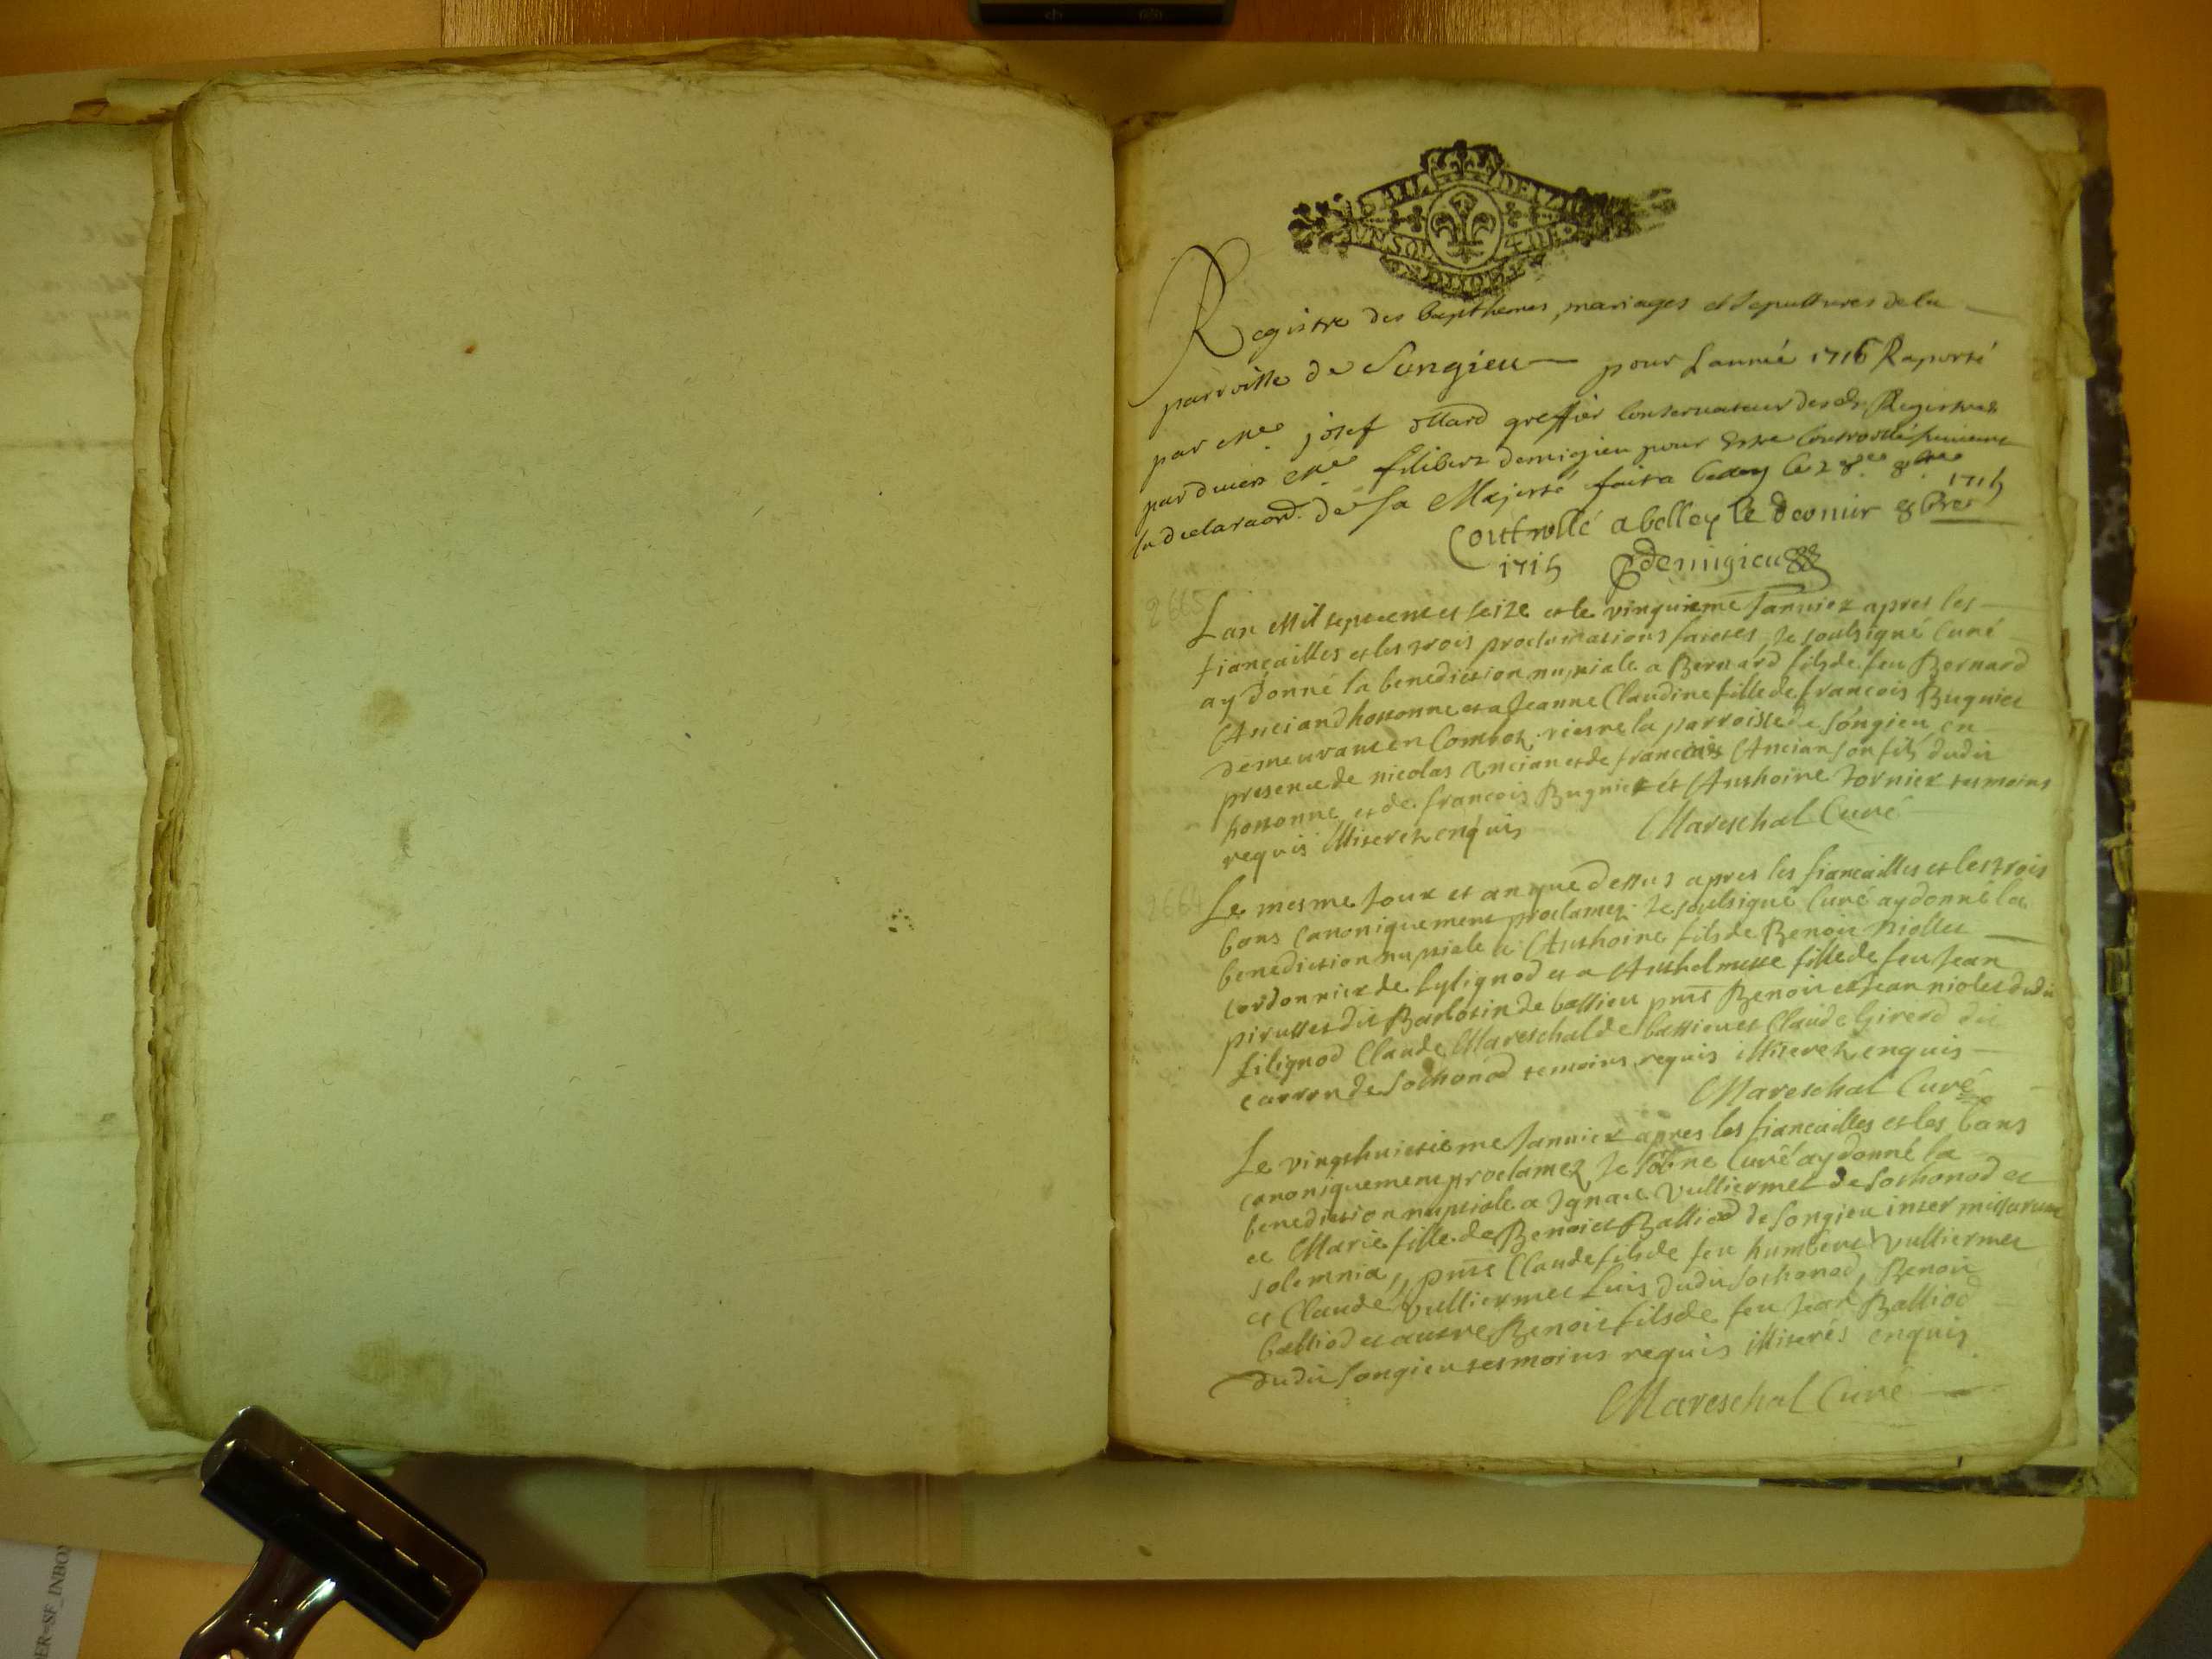 Registre des bapthemes, mariages et sepultures de la
parroisse de Songieu pour Lannée 1716 Raporté
par Me. josef ottard greffier Conservateur desd. Registres
par devers Me. filibert demigieu pour Estre Controollé suivant
la declaraon. de Sa Majesté fait a belley le 28e 8bre 1715
Controllé a belley le dernier 8bre
1715 Demigieu
2665
Lan Mil septcent et seize et le vinguieme Janvier apres les
fiançailles et les trois proclamations faictes, Je soubsigné Curé
ay donné la benediction nuptiale a Bernard fils de feu Bernard
Anciand hotonne et a Jeanne Claudine fille de françois Bugniet
demeurant en riere la parroisse de Songieu en
presence de nicolas Ancian et de francois Ancian son fils dudit
hotonne et de francois Bugniet et Anthoine tornier tesmoins
requis illiterez enquis Mareschal Curé
266
Le mesme Jour et an que dessus apres les fiancailles et les trois
bans Canoniquement proclamez Je soubsigné Curé ay donné la
benediction nuptiale a Anthoine fils de Benoit niollet
cordonnier de Lylignod et a Anthelmette fille de feu Jean
pirusset dit Barlotin de bassieu pnts Benoit et Jean niolet dudit
Lilignod Claude Mareschal de bassieu et Claude Girerd dit
carron de Sothonod temoins requis illiterez enquis
Mareschal Curé
Le vingthuictieme Janvier apres les fiancailles et les bans
canoniquement proclamez Je sobne Curé ay donné la
benediction nuptiale a Ignace Vulliermet de Sothonod et
et Marie fille de Benoict Balliod de Songieu inter missarum
solemnia, pnts Claude fils de feu humbert Vulliermet
et Claude Vulliermet Luis dudit Sothonod, Benoit
balliod et autre Benoit fils de feu Jean Balliod
dudit Songieu tesmoins requis illiterés enquis
Mareschal Curé
ER=SF_INBOX